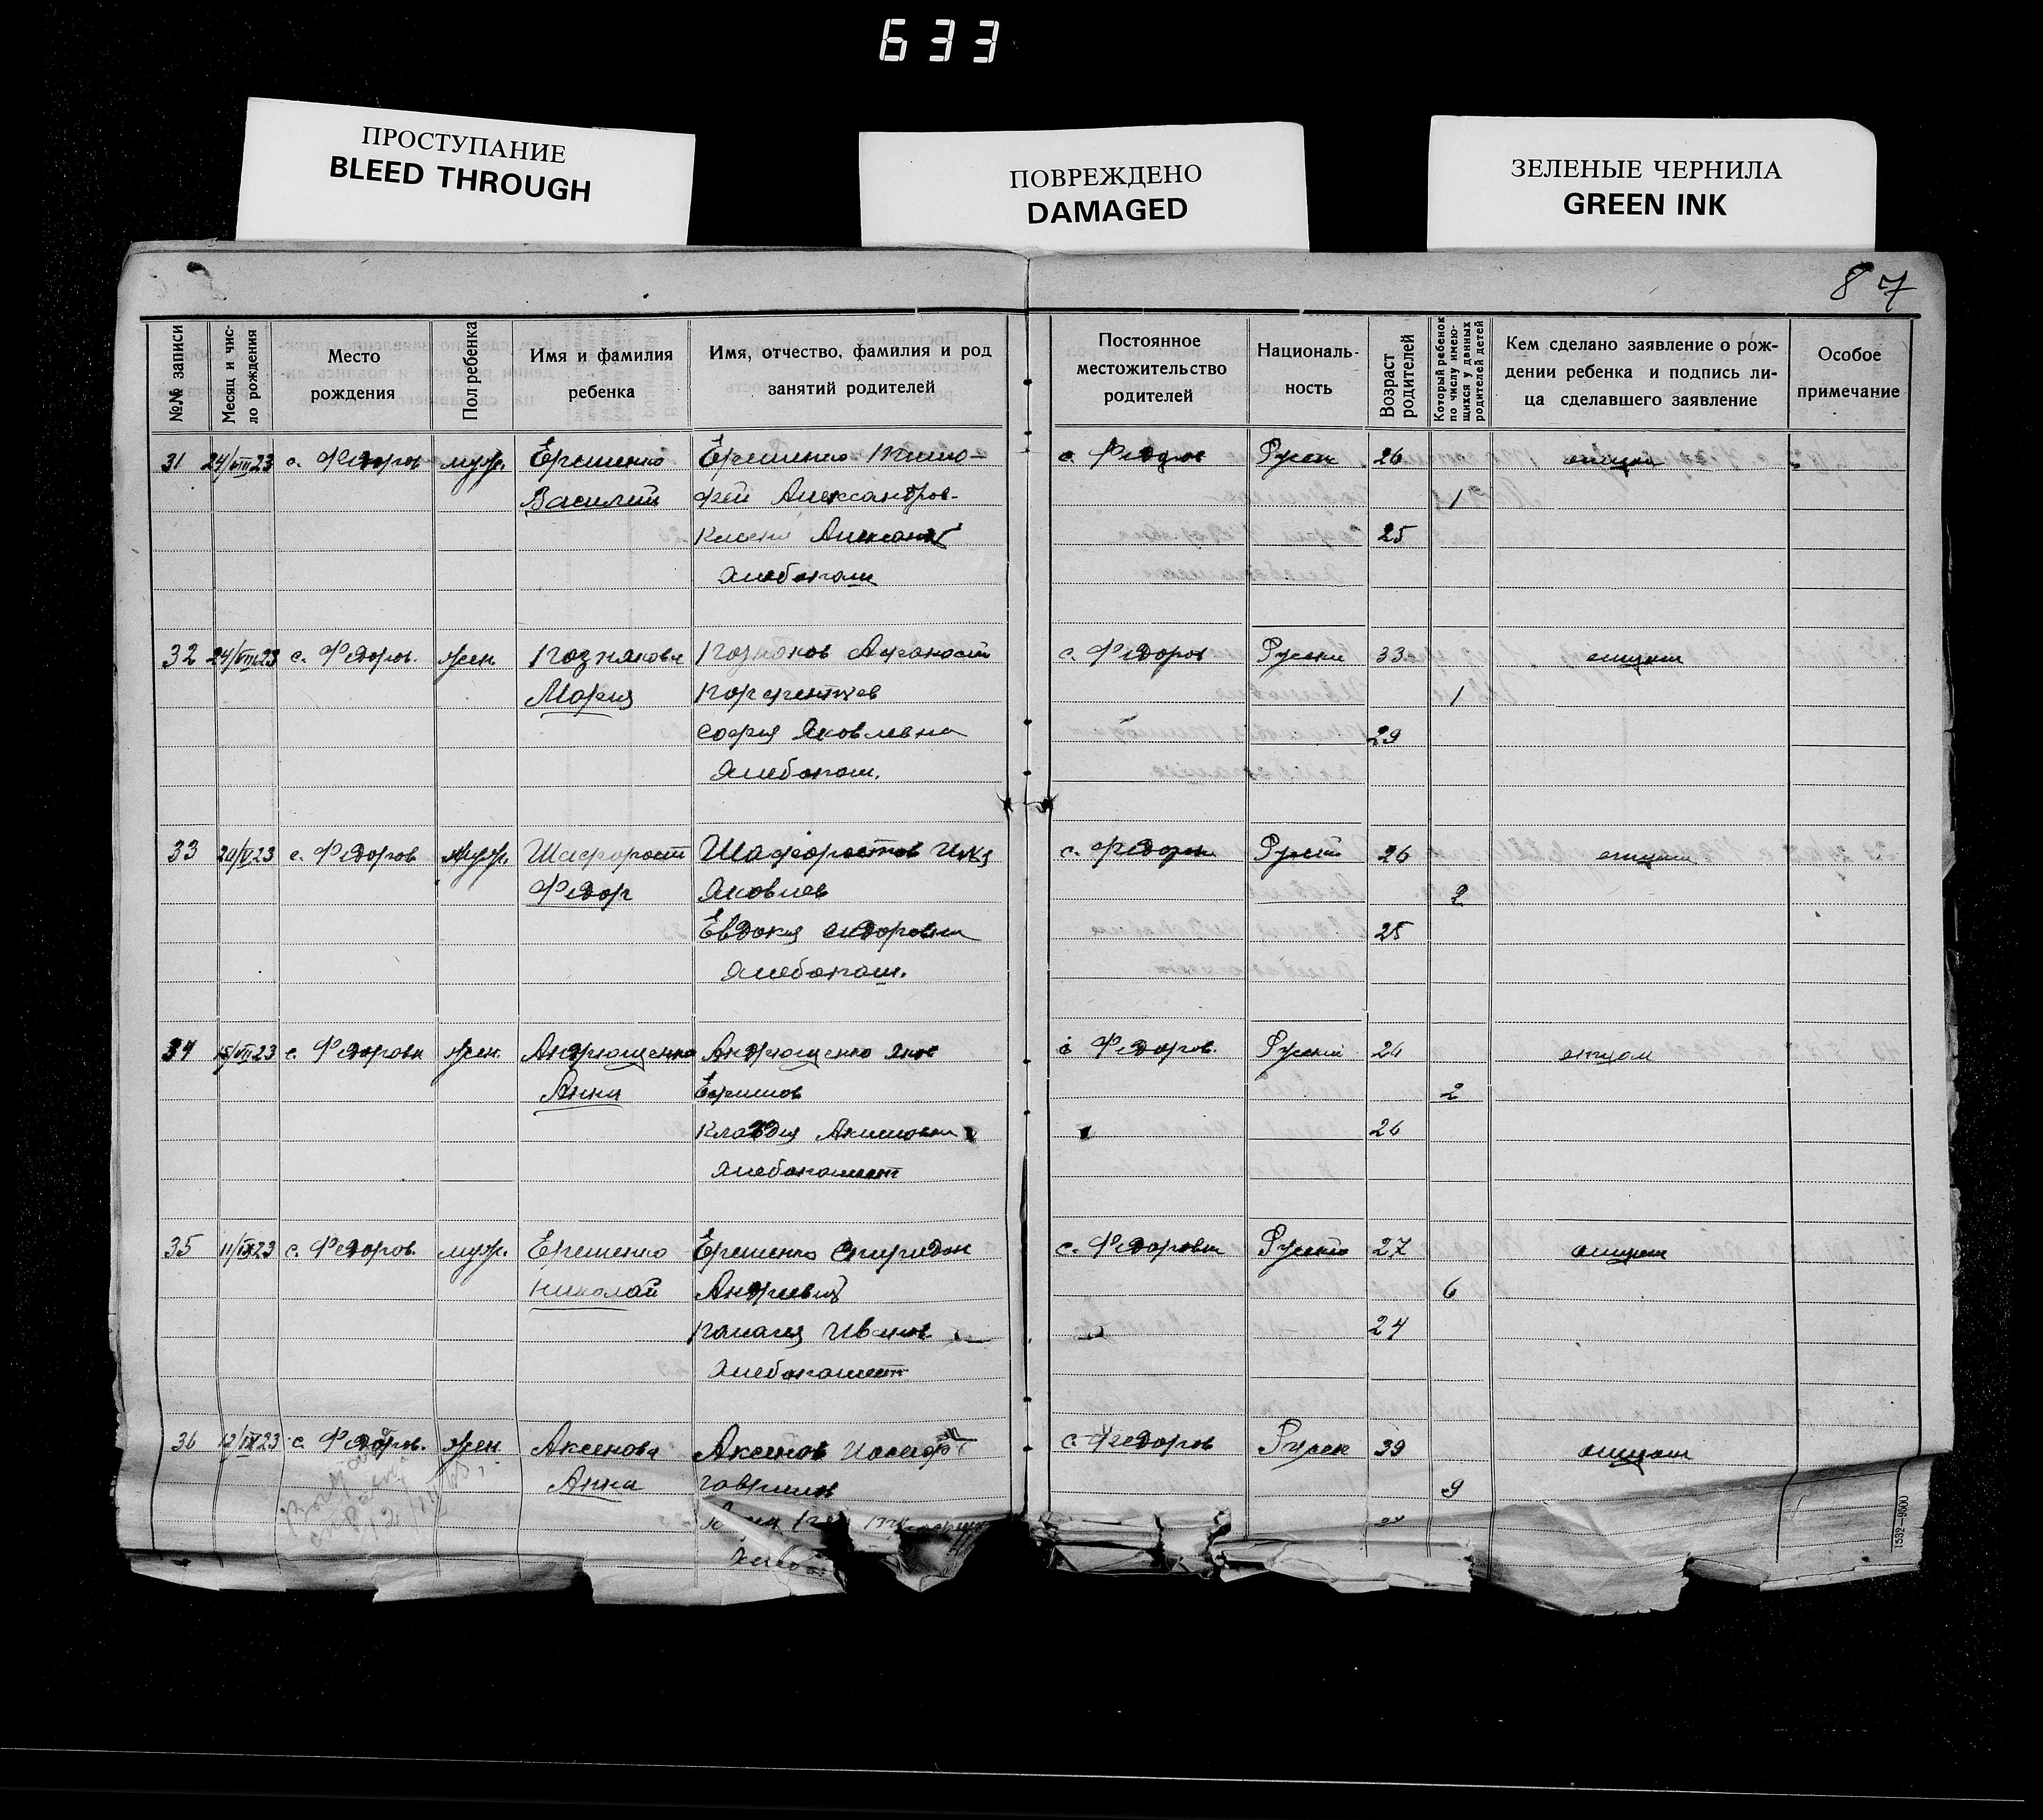 633
ПРОСТУПАНИЕ
BLEED THROUGH
ПОВРЕЖДЕНО
DAMAGED
ЗЕЛЕНЫЕ ЧЕРНИЛА
GREEN INK
87
№№ записи
Месяц и чис-
ло рождения
Место
рождения
Пол ребенка
Имя и фамилия
ребенка
Имя, отчество, фамилия и род
занятий родителей
Постоянное
местожительство
родителей
Националь-
ность
Возраст
родителей
Который ребенок
по числу имею-
щихся у данных
родителей детей
Кем сделано заявление о рож-
дении ребенка и подпись ли-
ца сделавшего заявление
Особое
примечание
31 24/VIII 23 с. Федоров муж. Ерешенко Ерешенко Тимо- с. Федоров Русск 26 отцом
Василий фей Александров 1
25
Хлебопаш
32 24/VIII 23 с. Федоров. жен. Познякова Позняков Афанасий с. Федоров Русски 33 отцом
Мария Порфентьев 1
София Яковлевна 29
Хлебопаш.
33 с. Федоров муж. Шафорост Шафоростов Илья с. Федоров Русский 26 отцом
Федор Яковлев 2
Евдокия Сидоровна 25
Хлебопаш.
34 15/VII 23 с. Федоровк жен. Андрющенко Андрющенко Яков с Федоров. Русский 24 отцом
Анна Ефимов 2
Клавдия Акимовна 26
Хлебопашест
35 11/IX 23 с. Федоров. муж. Ерешенко Ерешенко Спиридон с. Федоровка Русский 27 отцом
Николай Андреевич 6
Иванов 24
Хлебопашест
36 12/IX 23 с. Федоров. жен. Аксенова Аксенов Иосиф с. Федоров Русск 39 отцом
Анна Гаврилов 9
Хлебо
1532—9500